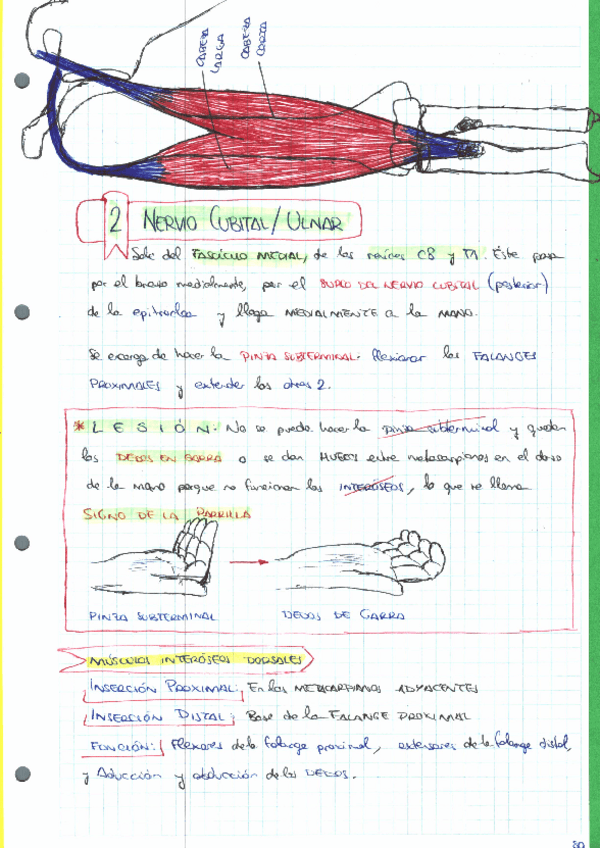 CABEZA LARGA
CABEZA CORTA
2 NERVIO CUBITAL/ULNAR
Sale del FASCÍCULO MEDIAL, de las raíces C8 y T1. Este pasa
por el brazo medialmente, por el SURCO DEL NERVIO CUBITAL (posterior)
de la epitróclea y llega MEDIALMENTE a la MANO.
Se encarga de hacer la PINZA SUBTERMINAL: flexionar las FALANGES
PROXIMALES y extender las otras 2.
* LESIÓN: No se puede hacer la pinza subterminal y quedan
los DEDOS EN GARRA o se dan HUECOS entre metacarpianos en el dorso
de la mano porque no funcionan los INTERÓSEOS, lo que se llama
SIGNO DE LA PARRILLA
PINZA SUBTERMINAL
DEDOS DE GARRA
MÚSCULOS INTERÓSEOS DORSALES
INSERCIÓN PROXIMAL: En los METACARPIANOS ADYACENTES
INSERCIÓN DISTAL: Base de la FALANGE PROXIMAL
FUNCIÓN: Flexores de la falange proximal, extensores de la falange distal,
y Aducción y abducción de los DEDOS.